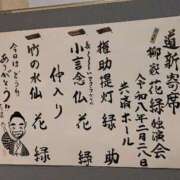 道新寄席
柳家花緑独演会
令和八年二月二八日
共済ホール
権助提灯 緑助
小言念仏 花緑
仲入り
竹の水仙 花緑
今日はどうも
ありがとう